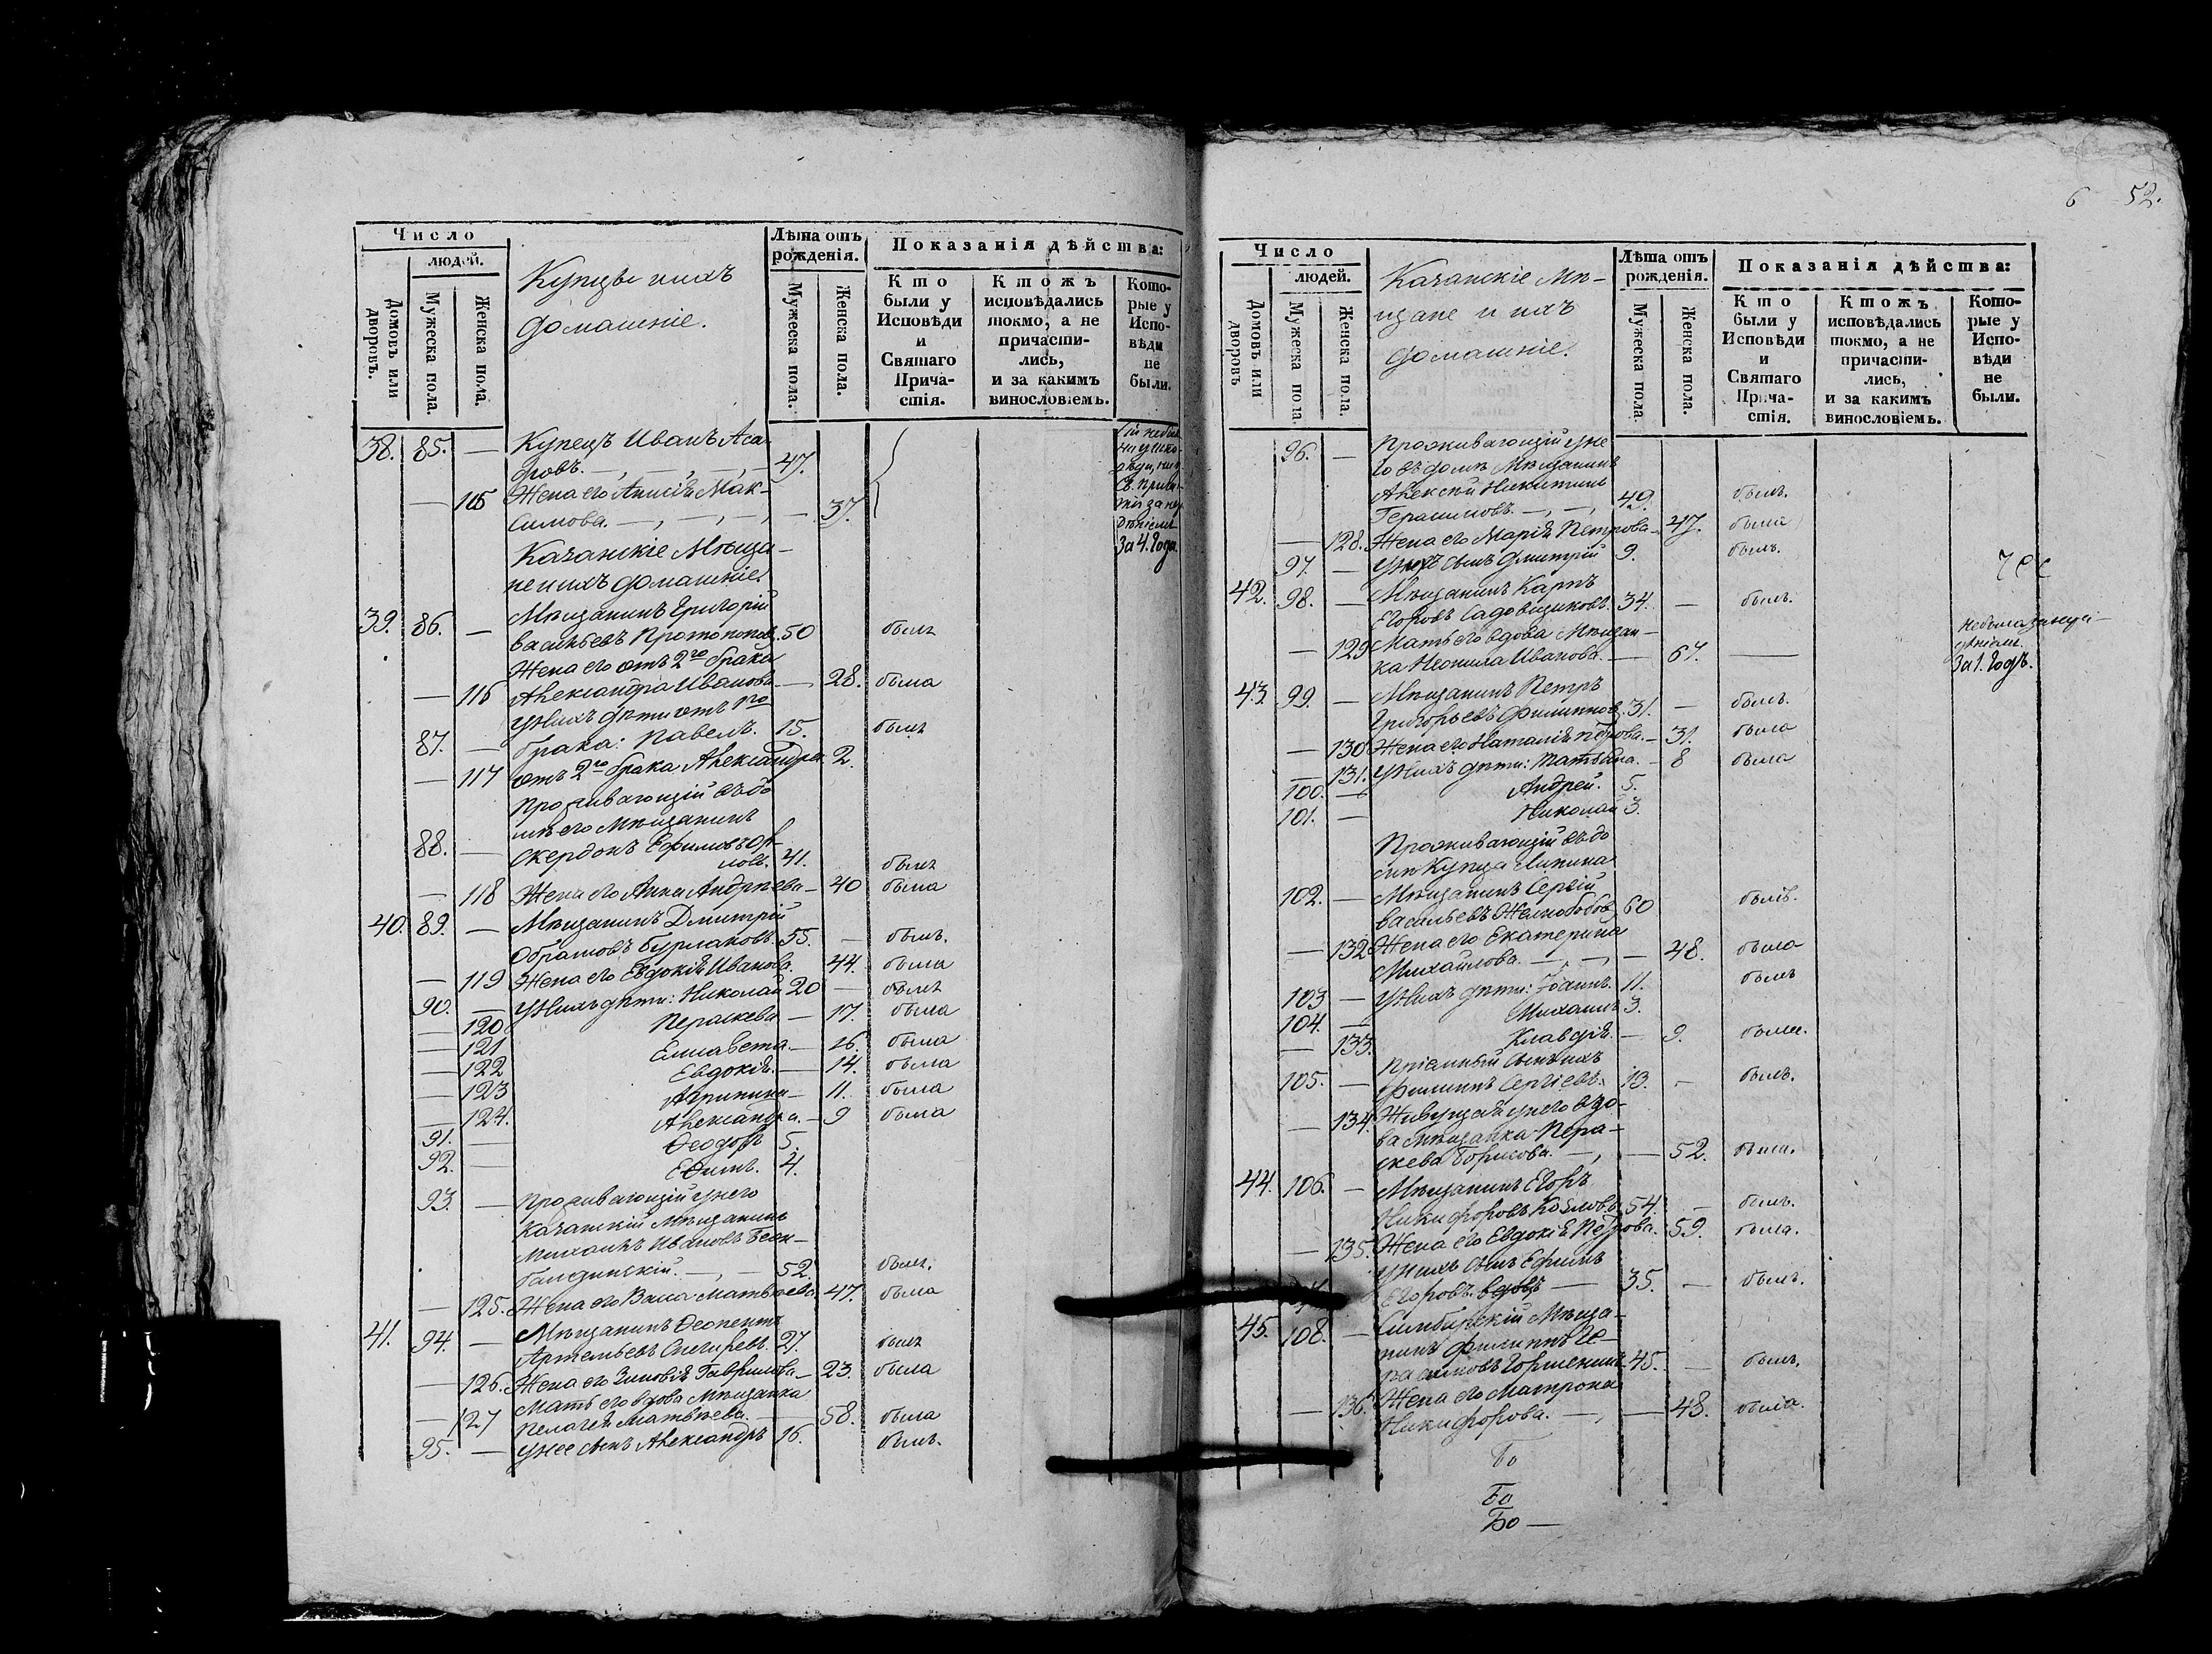 Число
людей.
Домовъ или дворовъ.
Мужеска пола.
Женска пола.
Купцы и ихъ
домашніе.
Лѣта отъ
рожденія.
Мужеска пола.
Женска пола.
Показанія дѣйства:
Кто
были у
Исповѣди
и
Святаго
Прича-
стія.
Ктожъ
исповѣдались
токмо, а не
причасти-
лись,
и за какимъ
винословіемъ.
Кото-
рые у
Испо-
вѣди
не
были.
38. 85. — Купецъ Иванъ Аса-
фовъ. —, —, —, — 47.
— 115 Жена его Анисія Мак-
симова. —, —, —, — 37.
за 4. года
Казанскіе Мѣща-
не и ихъ домашніе.
39. 86. — Мѣщанинъ Григорій
Васильевъ Протопоповъ. 50 былъ
Жена его отъ 2го брака
— 116 Александра Иванова — 28. была
У нихъ дѣти отъ 1го
87. — брака: Павелъ. 15. былъ
— 117 отъ 2го брака Александра. 2.
Проживающій въ до
мѣ его Мѣщанинъ
88. — Ефимовъ Ор-
ловъ. 41. былъ
— 118 Жена его Анна Андреева — 40 была
40. 89. — Мѣщанинъ Дмитрій
Бурлаковъ. 55. — былъ.
— 119 Жена его Евдокія Иванова. 44. была
90. — У нихъ дѣти: Николай 20 — былъ
— 120 Параскева — 17. была
— 121 Елисавета. — 16. была
— 122 Евдокія. — 14. была
— 123 Агрипина — 11. была
— 124. Александра. — 9 была
91. — Ѳеодоръ 5.
92. — Ефимъ. 4.
93. — Проживающій у него
Казанскій Мѣщанинъ
Михаилъ Ивановъ Беон-
—, — 52. былъ.
— 125. Жена его Васса Матвѣева. 47. была
41. 94. — Мѣщанинъ Ѳеопентъ
Артемьевъ Снегиревъ. 27. былъ
— 126. Жена его Зиновія Гаврилова — 23. была
Мать его вдова Мѣщанка
— 127 Пелагея Матвѣева. — 58. была
95. — У нее сынъ Александръ 16. былъ.
6 52.
Число
людей.
Домовъ или дворовъ
Мужеска пола
Женска пола.
Казанскіе Мѣ-
щане и ихъ
домашніе.
Лѣта отъ
рожденія.
Мужеска пола
Женска пола.
Показанія дѣйства:
Кто
были у
Исповѣди
и
Святаго
Прича-
стія.
Ктожъ
исповѣдались
токмо, а не
причасти-
лись,
и за какимъ
винословіемъ.
Кото-
рые у
Испо-
вѣди
не
были.
96. — Проживающій у не
го въ домѣ Мѣщанинъ
Алексѣй Никитинъ
Герасимовъ. —, —, 49. былъ.
— 128. Жена его Марія Петрова — 47. была
97. — У нихъ сынъ Дмитрій 9. былъ.
42. 98. — Мѣщанинъ Карпъ
Егоровъ Садовщиковъ. 34. — былъ.
— 129 Мать его вдова Мѣщан-
ка Неонила Иванова. — 67. —
за 1. годъ.
43. 99. — Мѣщанинъ Петръ
Григорьевъ Филиповъ. 31. — былъ.
— 130 Жена его Наталія Петрова. — 31. была
— 131. У нихъ дѣти: Татьяна. — 8 была
100. — Андрей. 5.
101. — Николай 3.
Проживающій въ до
мѣ Купца
102. — Мѣщанинъ Сергій
Васильевъ Желнобобовъ 60 былъ.
— 132 Жена его Екатерина
Михайлова. —, —, — 48. была
103 — У нихъ дѣти: Іоаннъ. 11. былъ
104. — Михаилъ 3.
— 133. Клавдія. — 9. была.
105. — Пріемный сынъ ихъ
Филиппъ Сергіевъ. 13. — былъ.
— 134. Живущая у него вдо-
ва Мѣщанка Пера-
скева Борисова. —, — 52. была.
44. 106. — Мѣщанинъ Егоръ
Никифоровъ Козловъ 54. — былъ.
— 135. Жена его Евдокія Петрова. 59. была.
У нихъ сынъ Ефимъ
Егоровъ вдовъ — 35. — былъ.
45. 108. — Симбирскій Мѣща-
нинъ Филиппъ Ге-
расимовъ Горшенинъ. 45. — былъ.
— 136. Жена его Матрона
Никифорова. —, — 48. была.
Бо
Бо
Бо —